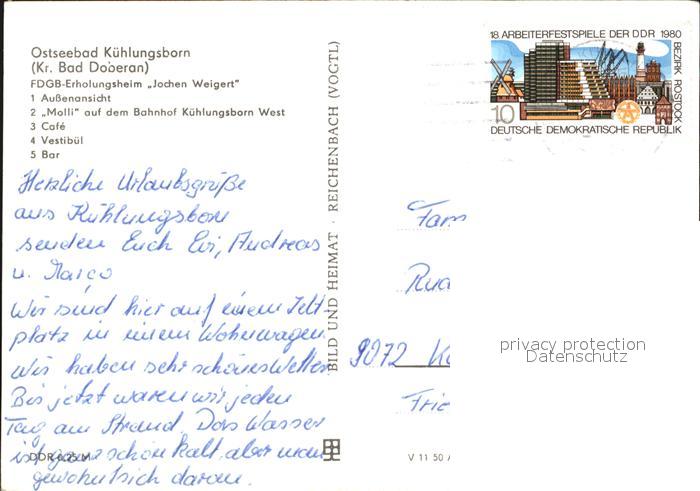 Ostseebad Kühlungsborn
(Kr. Bad Doberan)
FDGB-Erholungsheim „Jochen Weigert"
1 Außenansicht
2 „Molli" auf dem Bahnhof Kühlungsborn West
3 Café
4 Vestibül
5 Bar
Herzliche Urlaubsgrüße
aus Kühlungsborn
senden Euch Evi, Andreas
u. Marco
Wir sind hier auf einem Zelt-
platz in einem Wohnwagen.
Wir haben sehr schönes Wetter
Bis jetzt waren wir jeden
Tag am Strand. Das Wasser
ist ganz schön kalt, aber man
gewöhnt sich daran.
DDR 0,25 M
BILD UND HEIMAT · REICHENBACH (VOGTL)
18. ARBEITERFESTSPIELE DER DDR 1980
BEZIRK ROSTOCK
10
DEUTSCHE DEMOKRATISCHE REPUBLIK
Fam
9072 K
Frie
V 11 50
privacy protection
Datenschutz